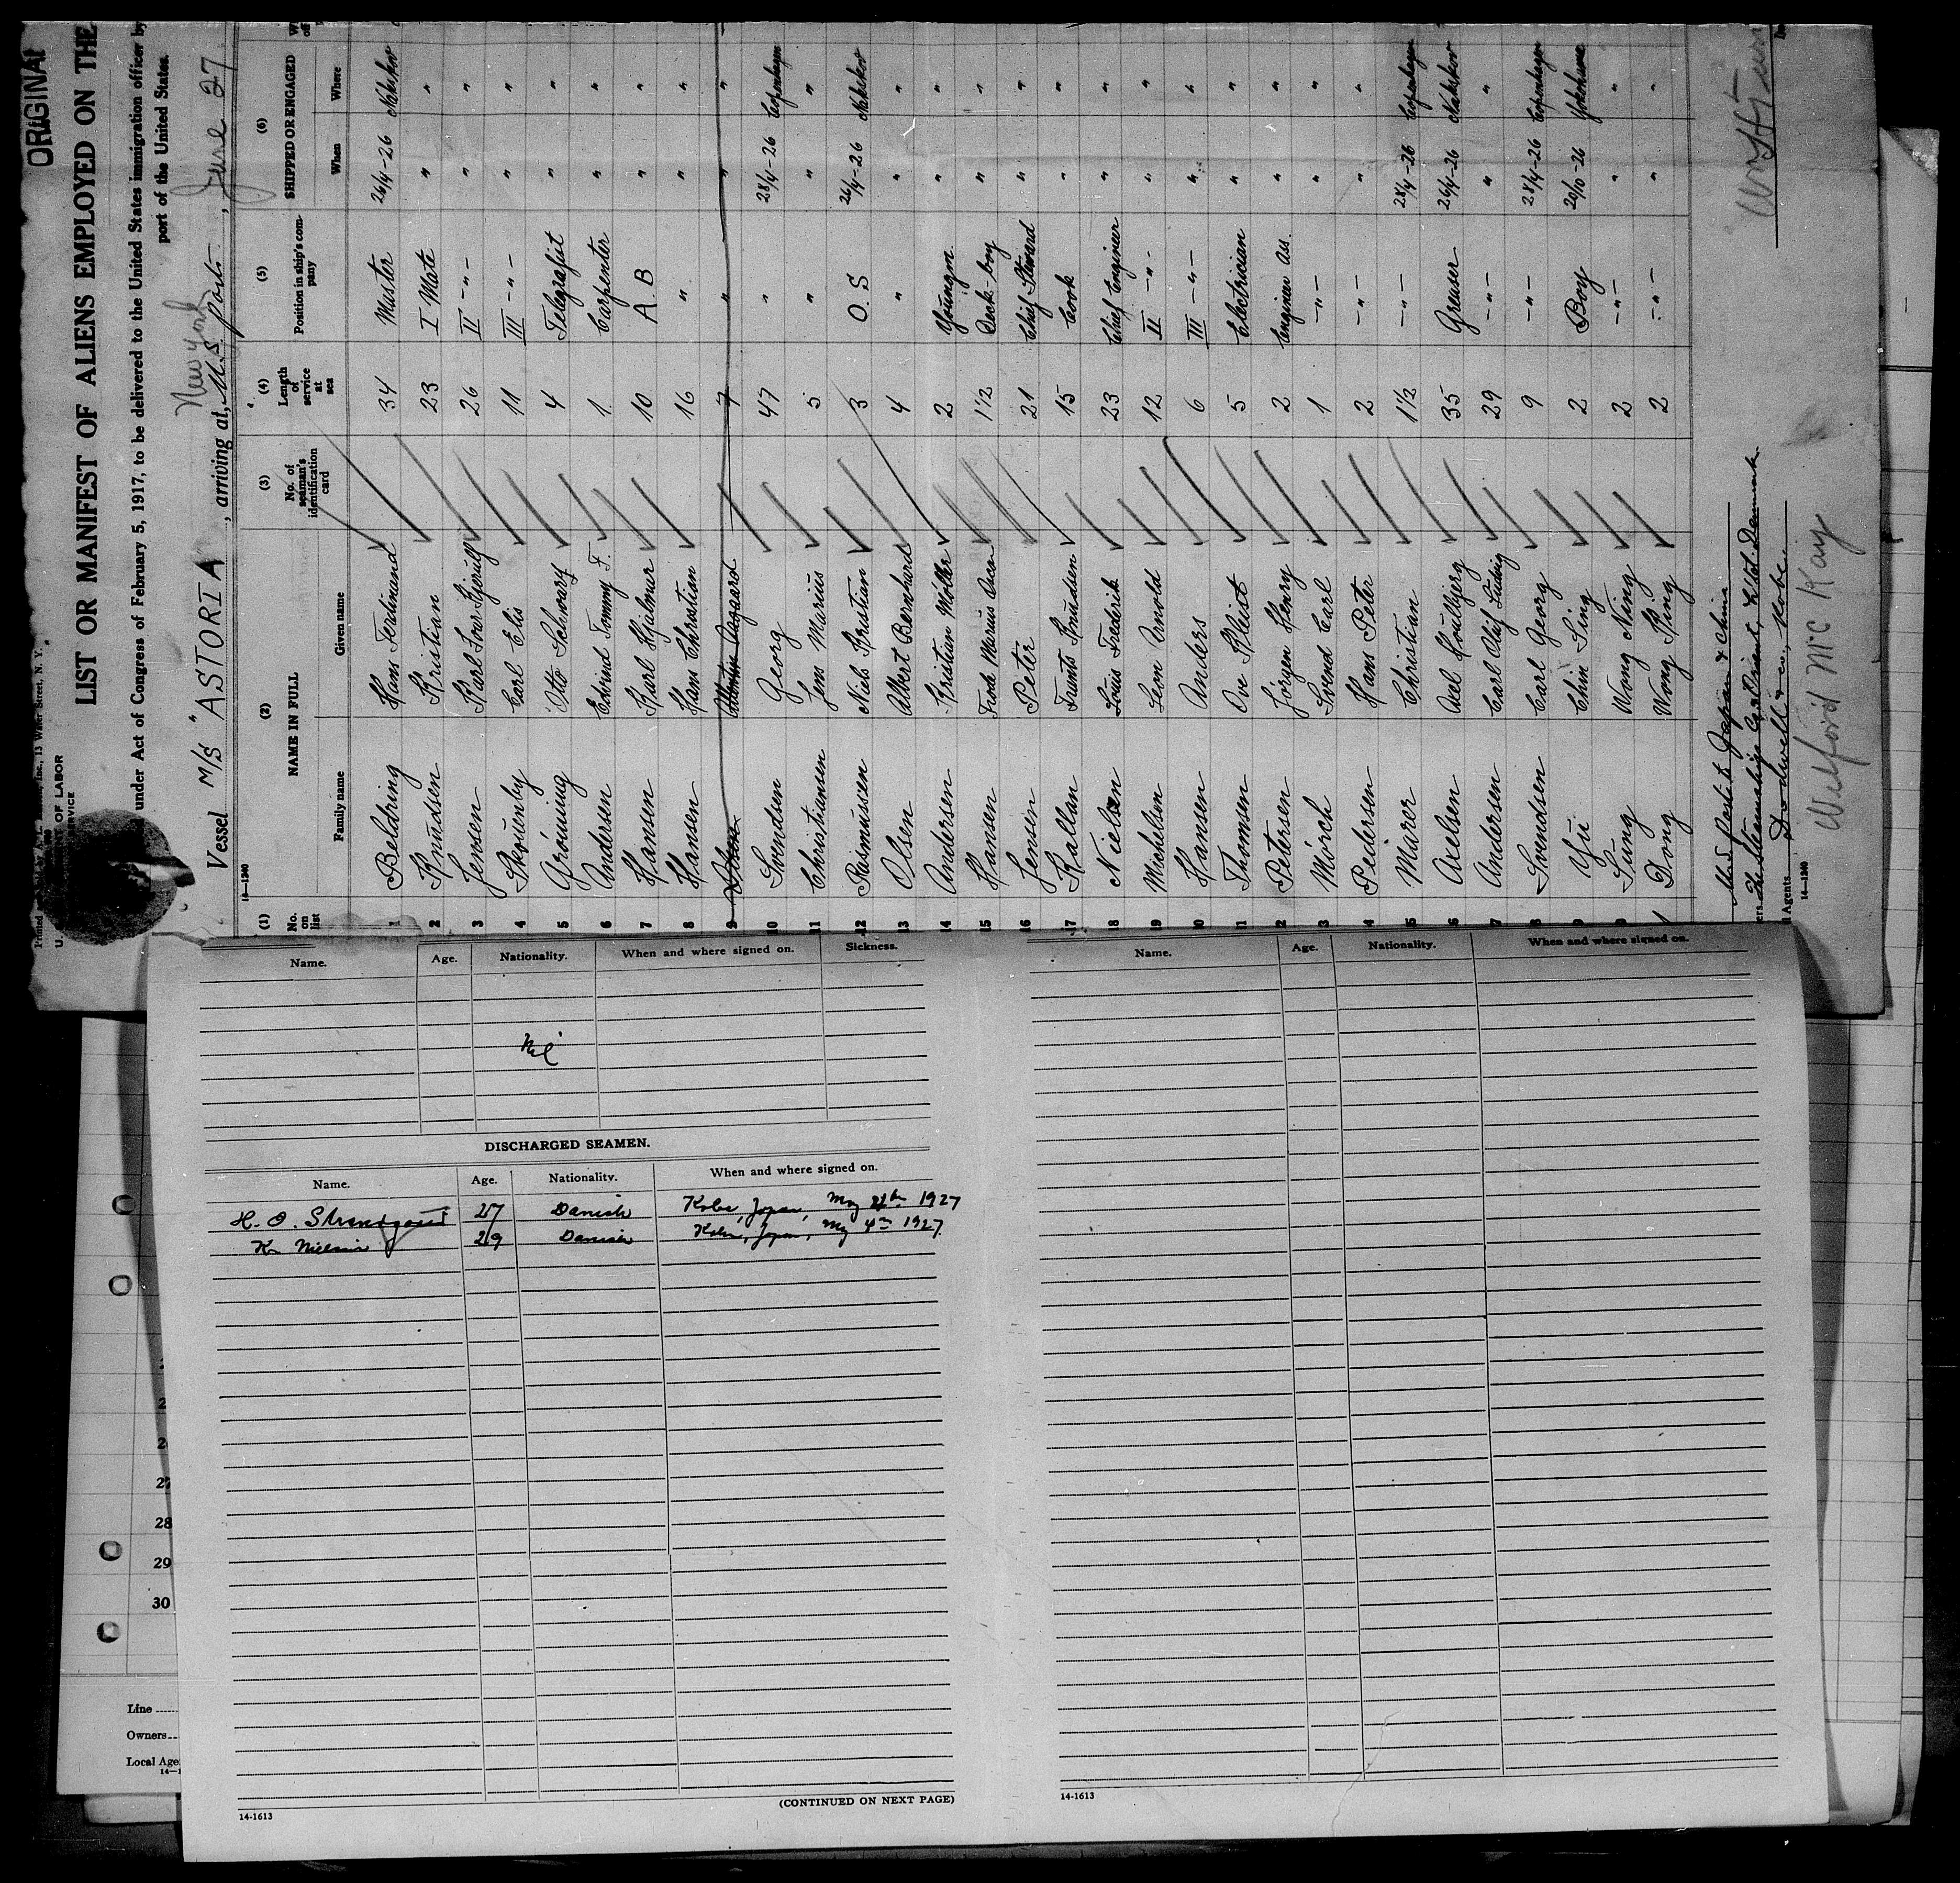 ORIGINAL
U. S. DEPARTMENT OF LABOR
LIST OR MANIFEST OF ALIENS EMPLOYED ON THE
under Act of Congress of February 5, 1917, to be delivered to the United States immigration officer by
port of the United States.
Vessel M/S "ASTORIA", arriving at, New York U.S. port, June 27
14—1240
(1) (2) (3) (4) (5) (6)
No. on list NAME IN FULL No. of seaman's identification card Length of service at sea Position in ship's company SHIPPED OR ENGAGED
Family name Given name When Where
1 Beldring Hans Ferdinand 34 Master 26/4-26 Nakskov
2 Knudsen Kristian 23 I Mate " "
3 Jensen Karl Lour Kjerulf 26 II -"- " "
4 Skouenby Carl Elis 11 III -"- " "
5 Gröning Otto Schwarz 4 Telegrafist " "
6 Andersen Edvind Tommy F. 1 Carpenter " "
7 Hansen Karl Hjalmar 10 A.B " "
8 Hansen Hans Christian 16 " " "
9 Olsen Aagaard 7 " " "
10 Svendsen Georg 47 " 28/4-26 Copenhagen
11 Christiansen Jens Marius 5 " " "
12 Rasmussen Niels Kristian 3 O.S 26/4-26 Nakskov
13 Olsen Albert Bernhard 4 " " "
14 Andersen Kristian Möller 2 Youngm. " "
15 Hansen Frode Marius Oscar 1 1/2 Deck-boy " "
16 Jensen Peter 21 Chief Steward " "
17 Kallan Frants Knudsen 15 Cook " "
18 Nielsen Louis Frederik 23 Chief Engineer " "
19 Michelsen Leon Arnold 12 II -"- " "
0 Hansen Anders 6 III -"- " "
1 Thomsen Ove Kleist 5 Electrician " "
2 Petersen Jörgen Henry 2 Engineer Ass. " "
3 Mörch Svend Carl 1 -"- " "
4 Pedersen Hans Peter 2 -"- " "
5 Marer Christian 1 1/2 -"- 28/4-26 Copenhagen
6 Axelsen Axel Houlbjerg 35 Greaser 26/4-26 Nakskov
7 Andersen Carl Oluf Ludvig 29 -"- " "
8 Svendsen Carl Georg 9 -"- 28/4-26 Copenhagen
9 Yii Chin Sing 2 Boy 20/10-26 Yokohama
0 Sung Wong Ning 2 -"- " "
Dong Wong King 2 -"- " "
U.S. Ports to Japan & China
Agents Dodwell & Co., Kobe.
14—1240
Wilford McKay
Name. Age. Nationality. When and where signed on. Sickness.
Nil
DISCHARGED SEAMEN.
Name. Age. Nationality. When and where signed on.
H. O. 27 Danish Kobe, Japan, May 1927
K. Nielsen 29 Danish Kobe, Japan, May 4th 1927
14-1613
(CONTINUED ON NEXT PAGE)
Name. Age. Nationality. When and where signed on.
14-1613
28
29
30
Line
Owners
Local Age